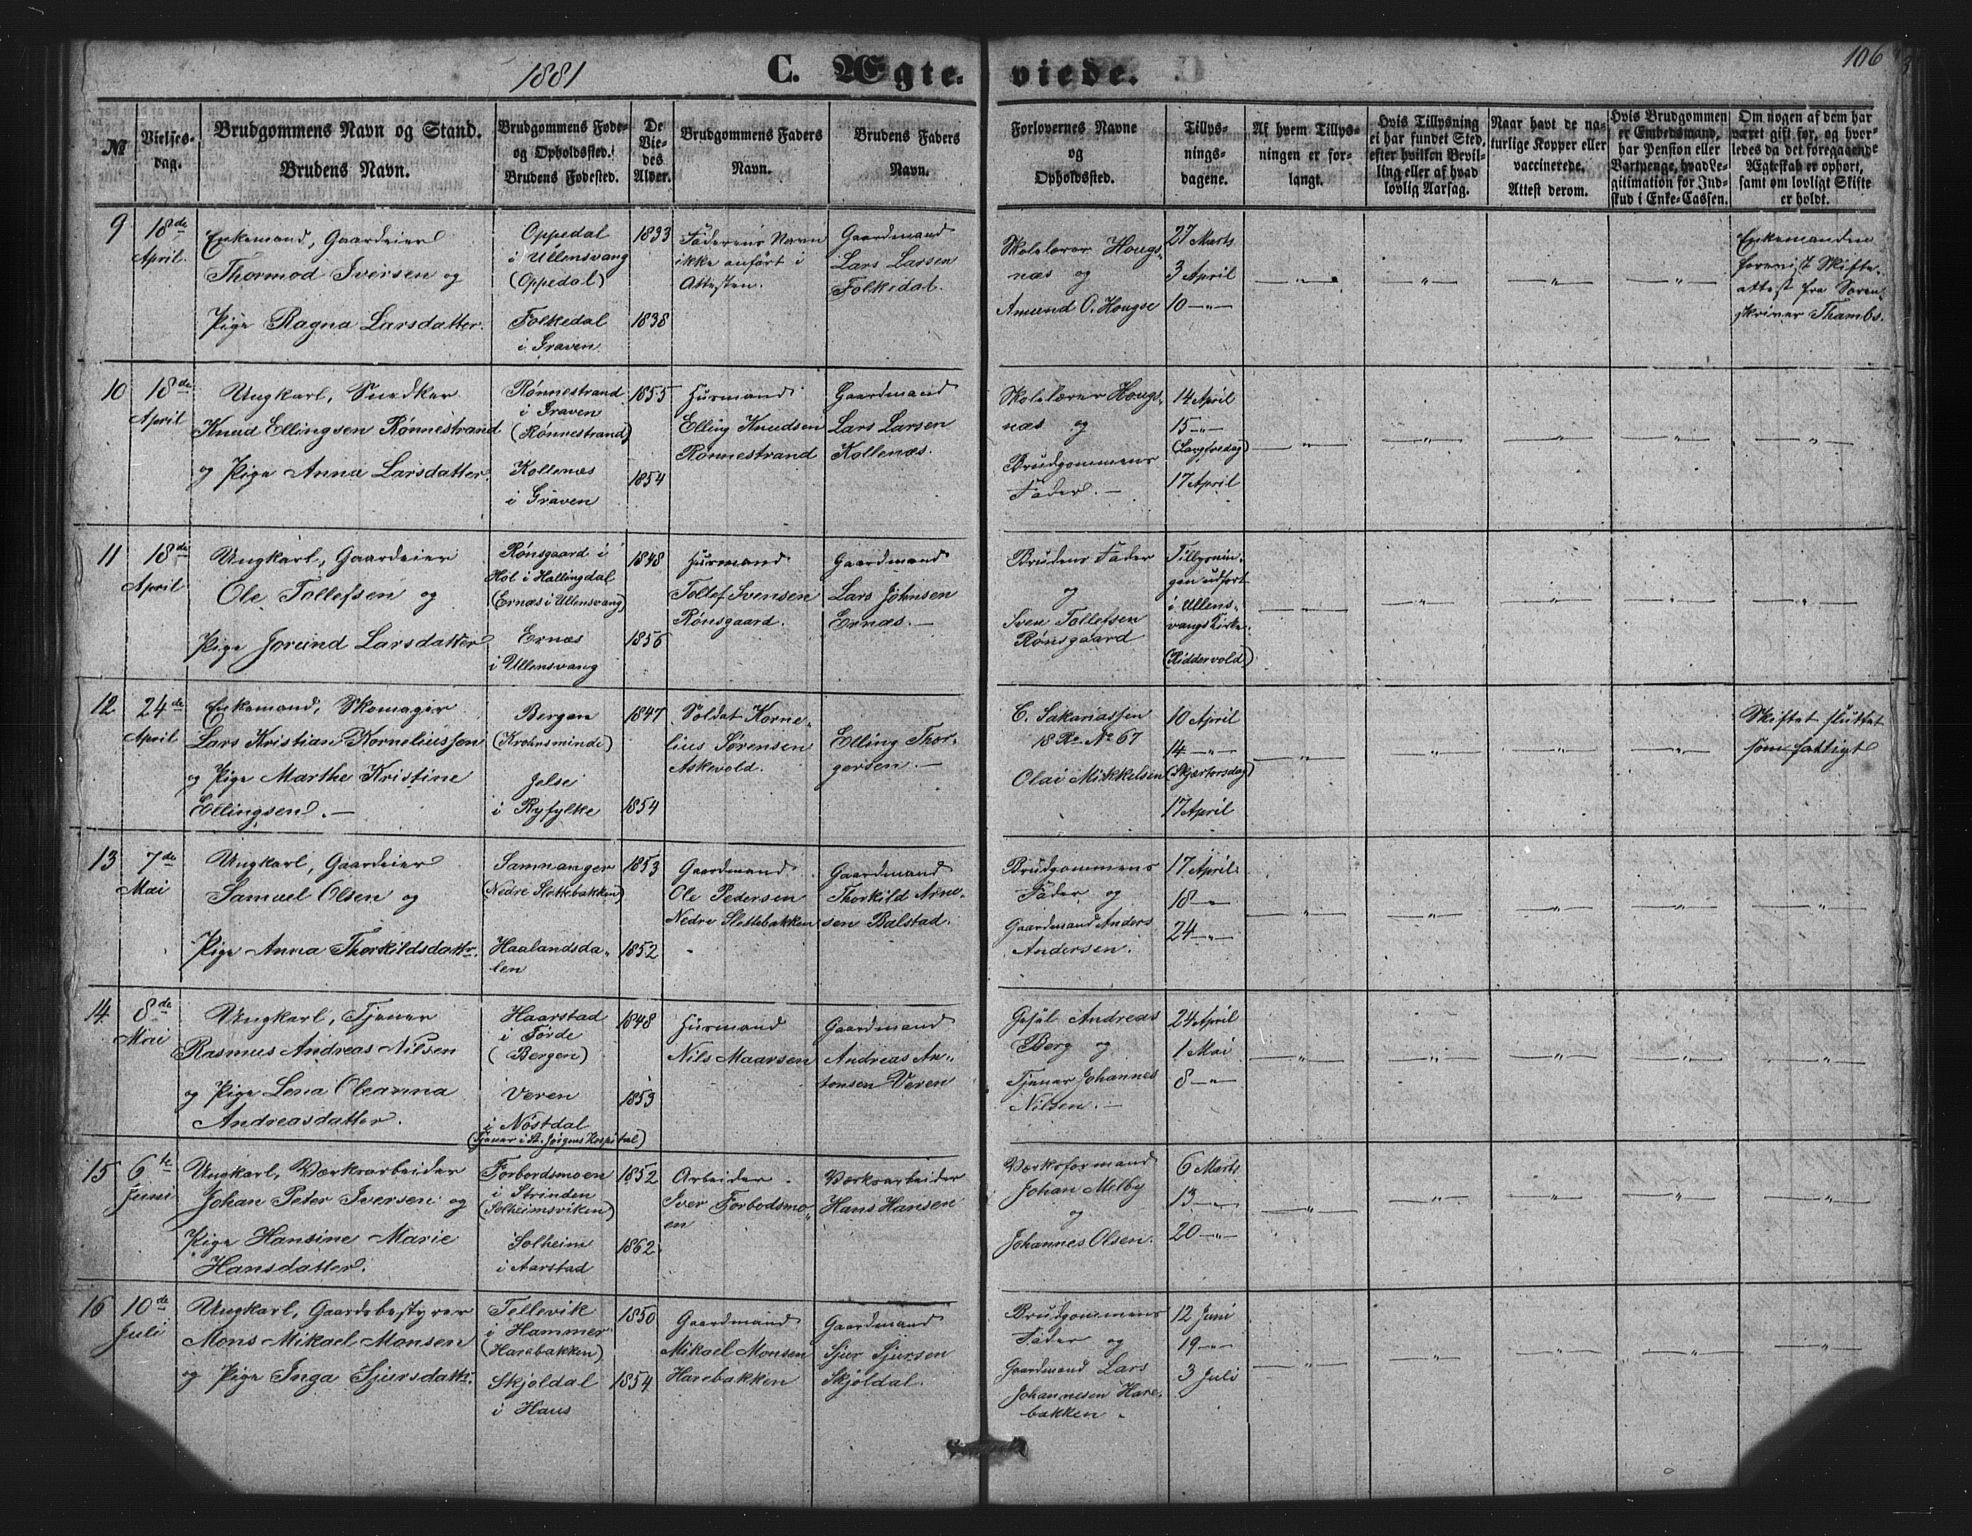 106
1881
C. Ægteviede.
№
Vielses-
dag.
Brudgommens Navn og Stand.
Brudens Navn.
Brudgommens Føde-
og Opholdssted.
Brudens Fødested.
De
Vie-
des
Alder.
Brudgommens Faders
Navn.
Brudens Faders
Navn.
Forlovernes Navne
og
Opholdssted.
Tillys-
nings-
dagene.
Af hvem Tillys-
ningen er for-
langt.
Hvis Tillysning
ei har fundet Sted,
efter hvilken Bevil-
ling eller af hvad
lovlig Aarsag.
Naar havt de na-
turlige Kopper eller
vaccinerede.
Attest derom.
Hvis Brudgommen
er Embedsmand,
har Pension eller
Vartpenge, hvad Le-
gitimation for Ind-
skud i Enke-Cassen.
Om nogen af dem har
været gift før, og hvor-
ledes da det foregaaende
Ægteskab er ophørt,
samt om lovligt Skifte
er holdt.
9
18de
April.
Enkemand, Gaardeier
Thormod Iversen og
Pige Ragna Larsdatter.
Oppedal
i Ullensvang
(Oppedal)
Folkedal
i Graven
1833
1838
Faderens Navn
ikke anført i
Attesten.
Gaardmand
Lars Larsen
Folkedal.
Skolelærer Hougs-
næs og
Amund O. Hougse
27 Marts
3 April
10 —〃—
—〃— —〃— —〃— —〃—
Enkemanden
forevist Skifte-
attest fra Soren-
skriver Thambs.
10
18de
April
Ungkarl, Snedker
Knud Ellingsen Rønnestrand
og Pige Anna Larsdatter.
Rønnestrand
i Graven
(Rønnestrand)
Kollenæs
i Graven
1855
1854
Husmand
Elling Knudsen
Rønnestrand
Gaardmand
Lars Larsen
Kollenæs.
Skolelærer Hougs-
næs og
Brudgommens
Fader. —
14 April
15 —〃—
(Langfredag)
17 April
—〃— —〃— —〃— —〃— —〃—
11
18de
April
Ungkarl, Gaardeier
Ole Tollefsen og
Pige Jorund Larsdatter
Rønsgaard i
Hol i Hallingdal
(Ernæs i Ullensvang)
Ernæs
i Ullensvang
1848
1856
Husmand
Tollef Svensen
Rønsgaard.
Gaardmand
Lars Johnsen
Ernæs. —
Brudens Fader
og
Sven Tollefsen
Rønsgaard
Tillysnin-
gen udført
i Ullens-
vangs Kirke.
(Riddervold)
—〃— —〃— —〃— —〃— —〃—
12
24de
April
Enkemand, Skomager
Lars Kristian Korneliussen
og Pige Marthe Kristine
Ellingsen. —
Bergen
(Krohnsminde)
Jelse
i Ryfylke
1847
1854
Soldat Korne-
lius Sørensen
Askevold.
Elling Thor-
gersen. —
C. Sakariassen
18 Ro. No 67
Olai Mikkelsen
10 April
14 —〃—
(Skjærtorsdag)
17 April
—〃— —〃— —〃— —〃—
Skiftet sluttet
som fattigt
13
7de
Mai
Ungkarl, Gaardeier
Samuel Olsen og
Pige Anna Thorkildsdattr.
Samnanger
(Nedre Slettebakken)
Haalandsda-
len
1853
1852
Gaardmand
Ole Pedersen
Nedre Slettebakken
Gaardmand
Thorkild Arne-
sen Balstad.
Brudgommens
Fader og
Gaardmand Anders
Andersen.
17 April
18 —〃—
24 —〃—
—〃— —〃— —〃— —〃— —〃—
14
8de
Mai
Ungkarl, Tjener
Rasmus Andreas Nilsen
og Pige Lena Oleanna
Andreasdatter.
Haarstad
i Førde
(Bergen)
Veren
i Nøstdal
(Tjener i St. Jørgens Hospital)
1848
1853
Husmand
Nils Maarsen
Gaardmand
Andreas An-
tonsen Veren
Gesjel Andreas
Berg og
Tjener Johannes
Nilsen. —
24 April
1 Mai
8 —〃—
—〃— —〃— —〃— —〃— —〃—
15
6te
Juni
Ungkarl, Værksarbeider
Johan Peter Iversen og
Pige Hansine Marie
Hansdatter.
Forbordsmoen
i Strinden
(Solheimsviken)
Solheim
i Aarstad
1852
1862
Arbeider
Iver Forbodsmo-
en
Værksarbeider
Hans Hansen
Værksformand
Johan Melby
og
Johannes Olsen.
6 Marts
13 —〃—
20 —〃—
—〃— —〃— —〃— —〃— —〃—
16
10de
Juli
Ungkarl, Gaardsbestyrer
Mons Mikael Monsen
og Pige Inga Sjursdattr.
Tellevik
i Hammer
(Harebakken)
Skjoldal
i Haus
1850
1854
Gaardmand
Mikael Monsen
Harebakken
Gaardmand
Sjur Sjursen
Skjoldal.
Brudgommens
Fader og
Gaardmand Lars
Johannesen Hare-
bakken.
12 Juni
19 —〃—
3 Juli
—〃— —〃— —〃— —〃— —〃—